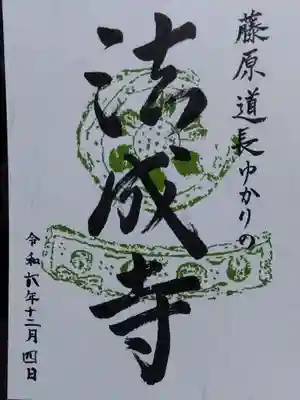 藤原道長ゆかりの
法成寺
令和弐年十二月四日